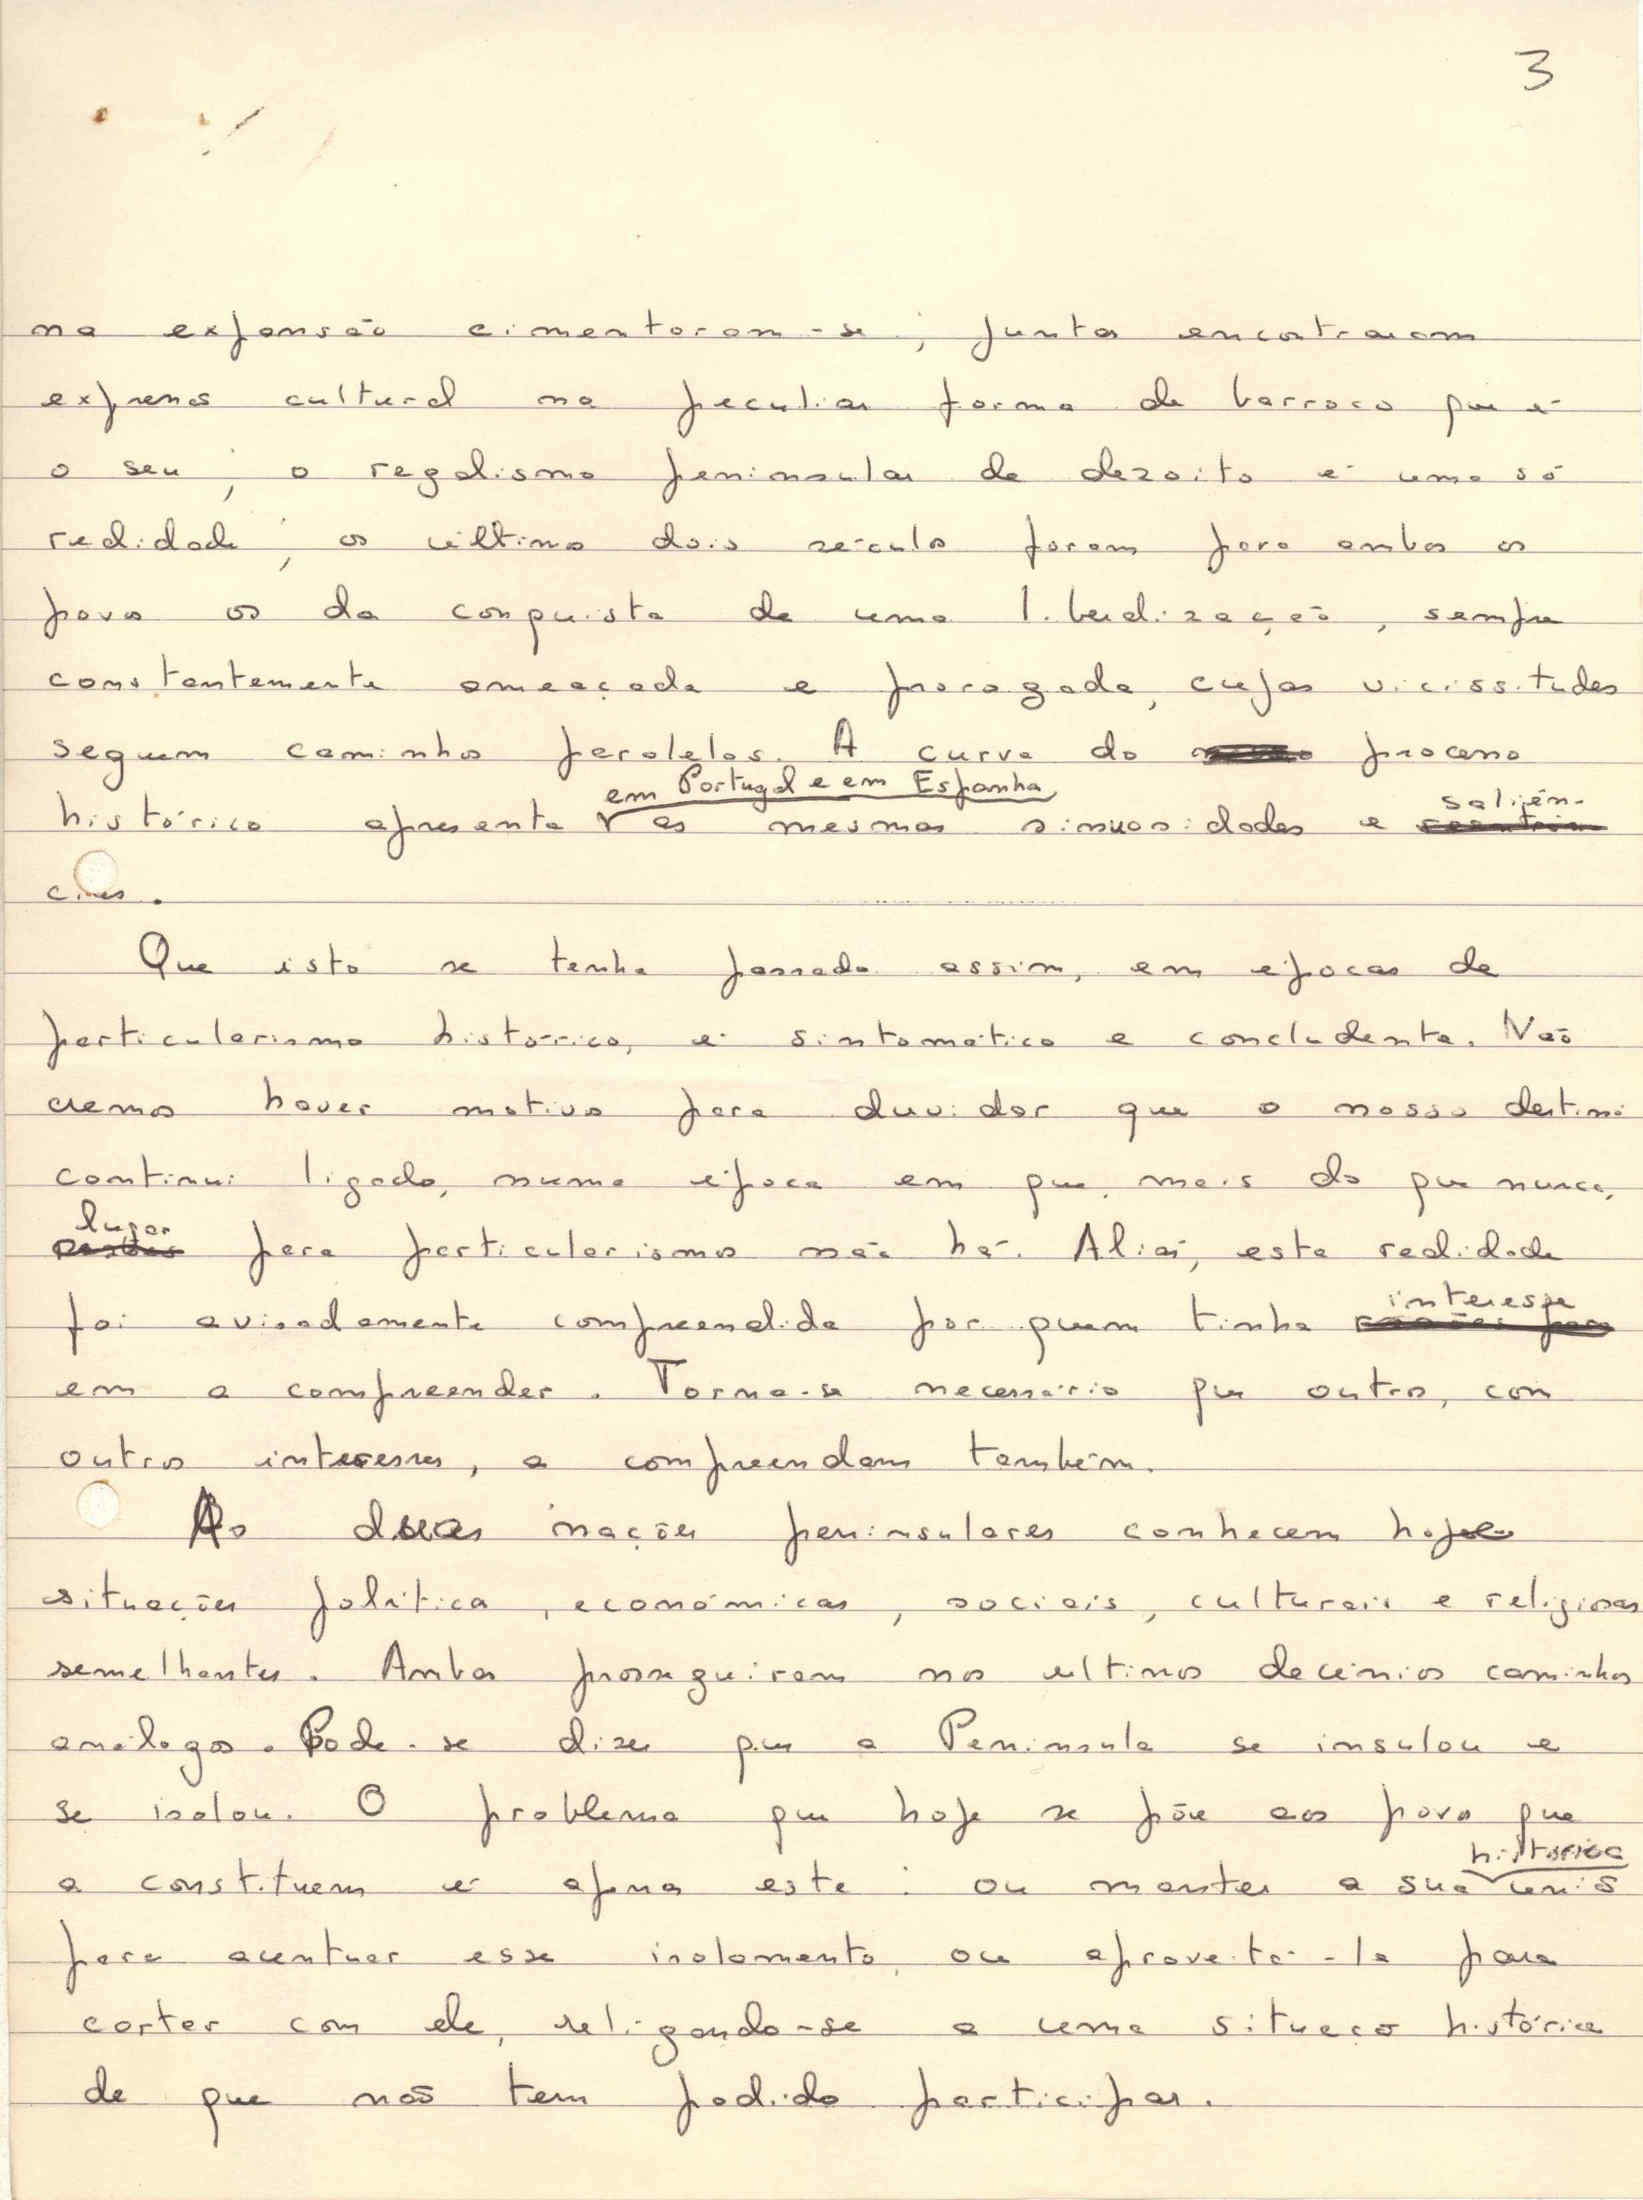 3
na expansão cimentaram-se; juntas encontraram
expressão cultural na peculiar forma de barroco que é
o seu; o regalismo peninsular de dezoito é uma só
realidade; os últimos dois séculos foram para ambos os
povos os da conquista de uma liberalização, sempre
constantemente ameaçada e prorogada, cujas vicissitudes
seguem caminhos paralelos. A curva do processo
em Portugal e em Espanha
histórico apresenta as mesmas sinuosidades e saliên-
cias.
Que isto se tenha passado assim, em épocas de
particularismo histórico, é sintomático e concludente. Não
cremos haver motivo para duvidar que o nosso destino
continui ligado, numa época em que, mais do que nunca,
lugar
para particularismos não há. Aliás, esta realidade
foi avisadamente compreendida por quem tinha interesse
em a compreender. Torna-se necessário que outros, com
outros interesses, a compreendam também.
As duas nações peninsulares conhecem hoje
situações políticas, económicas, sociais, culturais e religiosas
semelhantes. Ambas prosseguiram nos ultimos decénios caminhos
análogos. Pode-se dizer que a Peninsula se insulou e
se isolou. O problema que hoje se põe aos povos que
histórica
a constituem é apenas este: ou manter a sua união
para acentuar esse isolamento, ou aproveitá-la para
cortar com ele, religando-se a uma situação histórica
de que não tem podido participar.